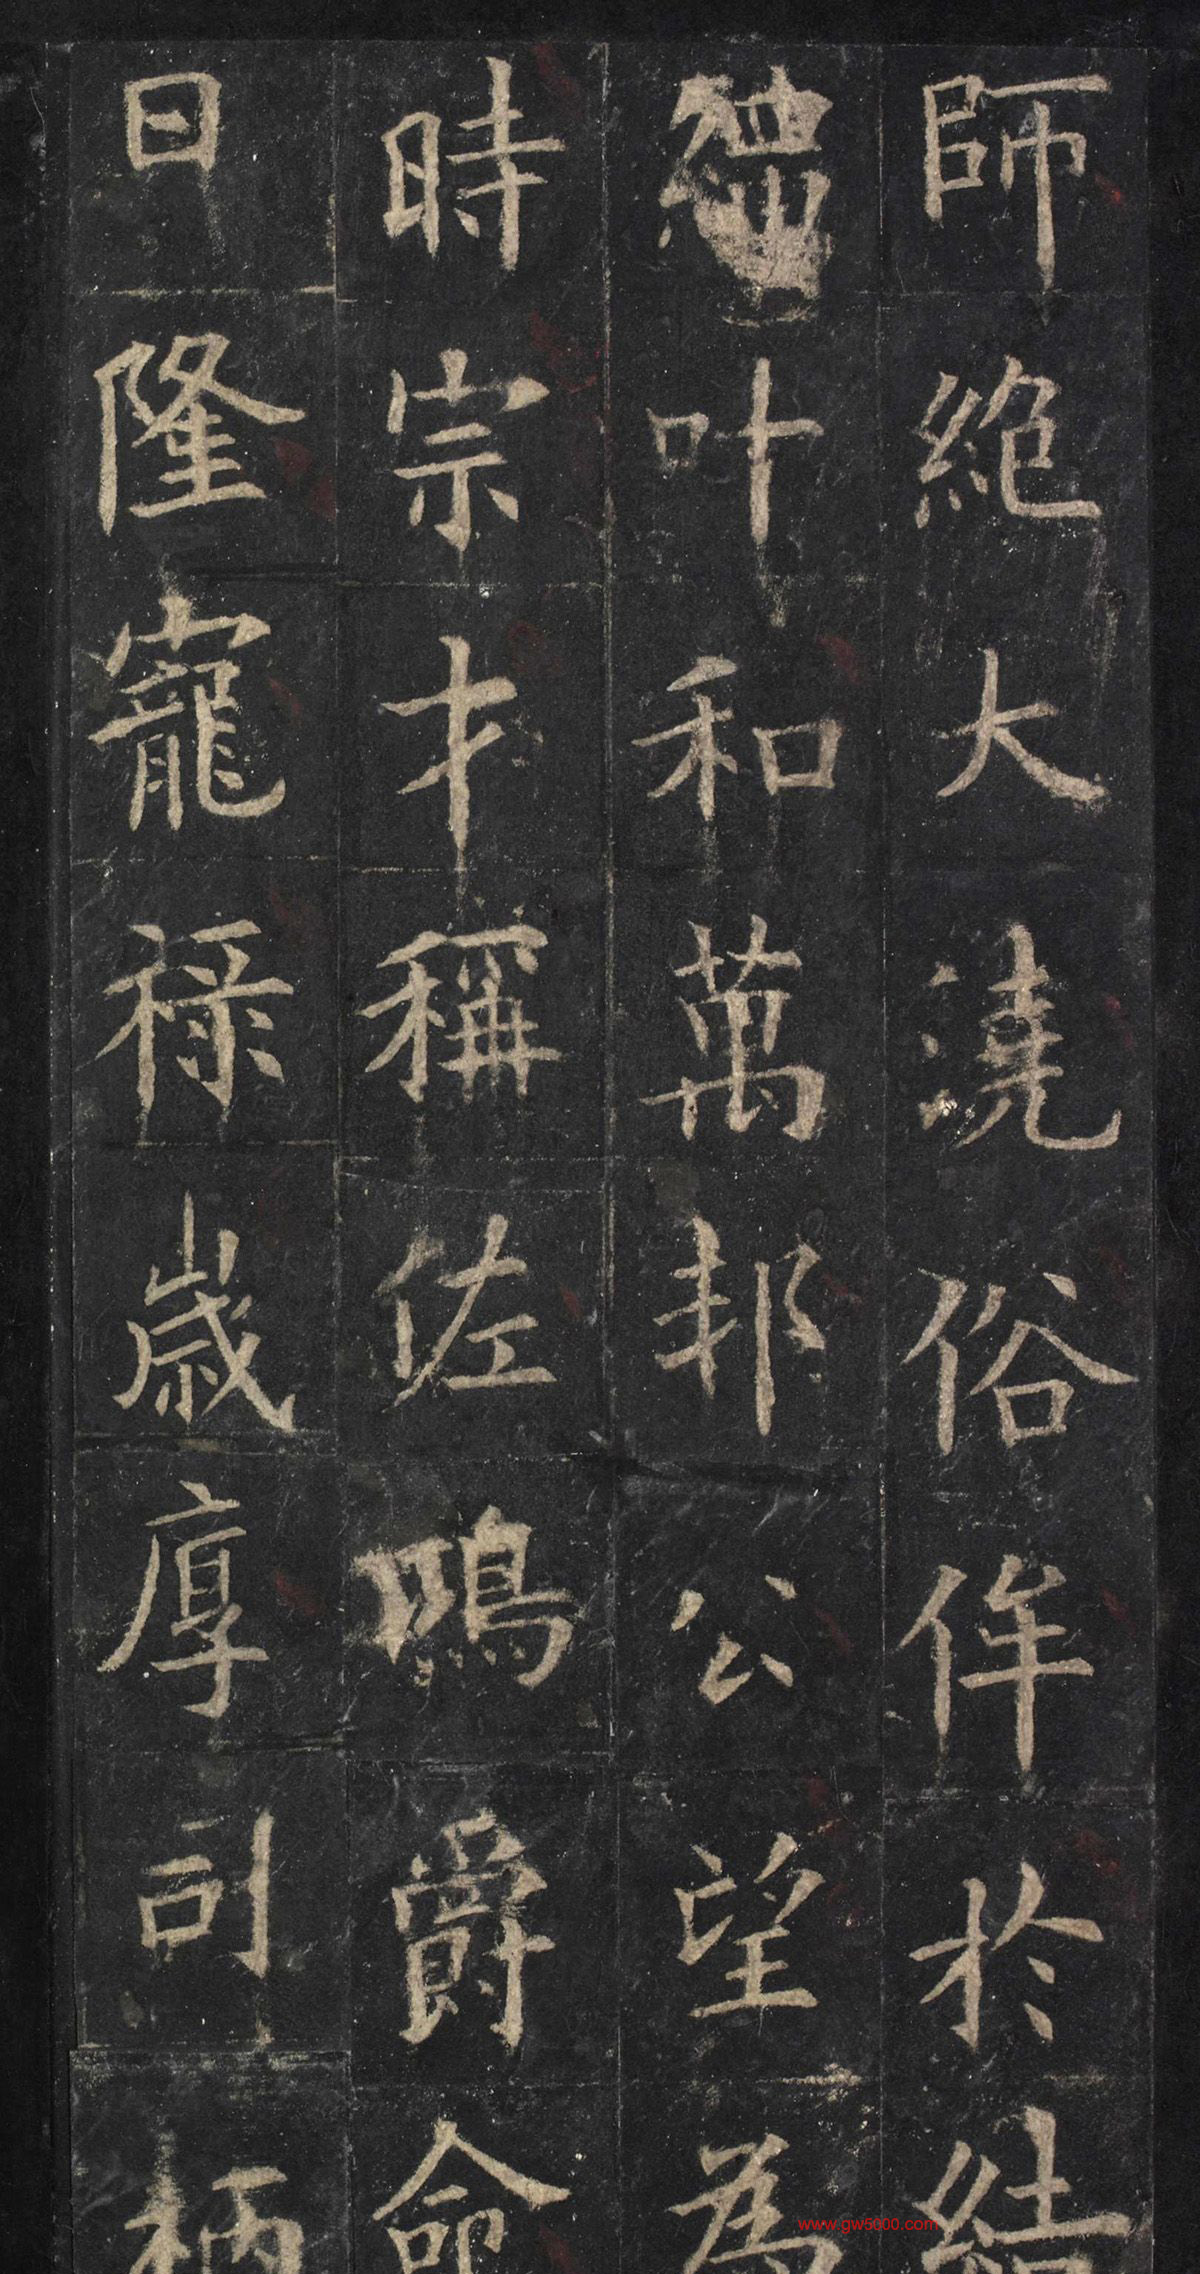 師絶大澆俗侔於結
繩叶和萬邦公望為
時宗才稱佐鳴爵命
日隆寵禄歲厚司柄
www.gw5000.com